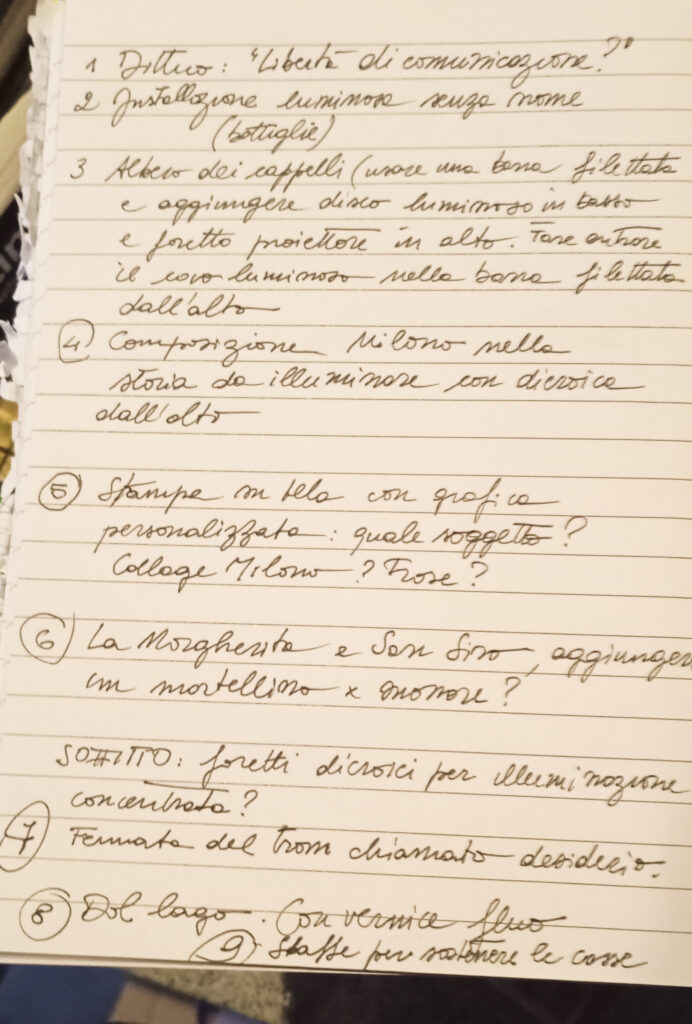 1 Dittico: "Libertà di comunicazione?"
2 Installazione luminosa senza nome
(bottiglie)
3 Albero dei cappelli (usare una barra filettata
e aggiungere disco luminoso in basso
e faretto proiettore in alto. Fare entrare
il cavo luminoso nella barra filettata
dall'alto
4 Composizione Milano nella
storia da illuminare con dicroica
dall'alto
5 Stampe su tela con grafica
personalizzata: quale soggetto?
Collage Milano? Frase?
6 La Margherita e San Siro, aggiunger
un martellino x suonare?
SOFFITTO: faretti dicroici per illuminazione
concentrata?
7 Fermata del tram chiamato desiderio.
8 Dal lago. Con vernice fluo
9 Staffe per sostenere le casse